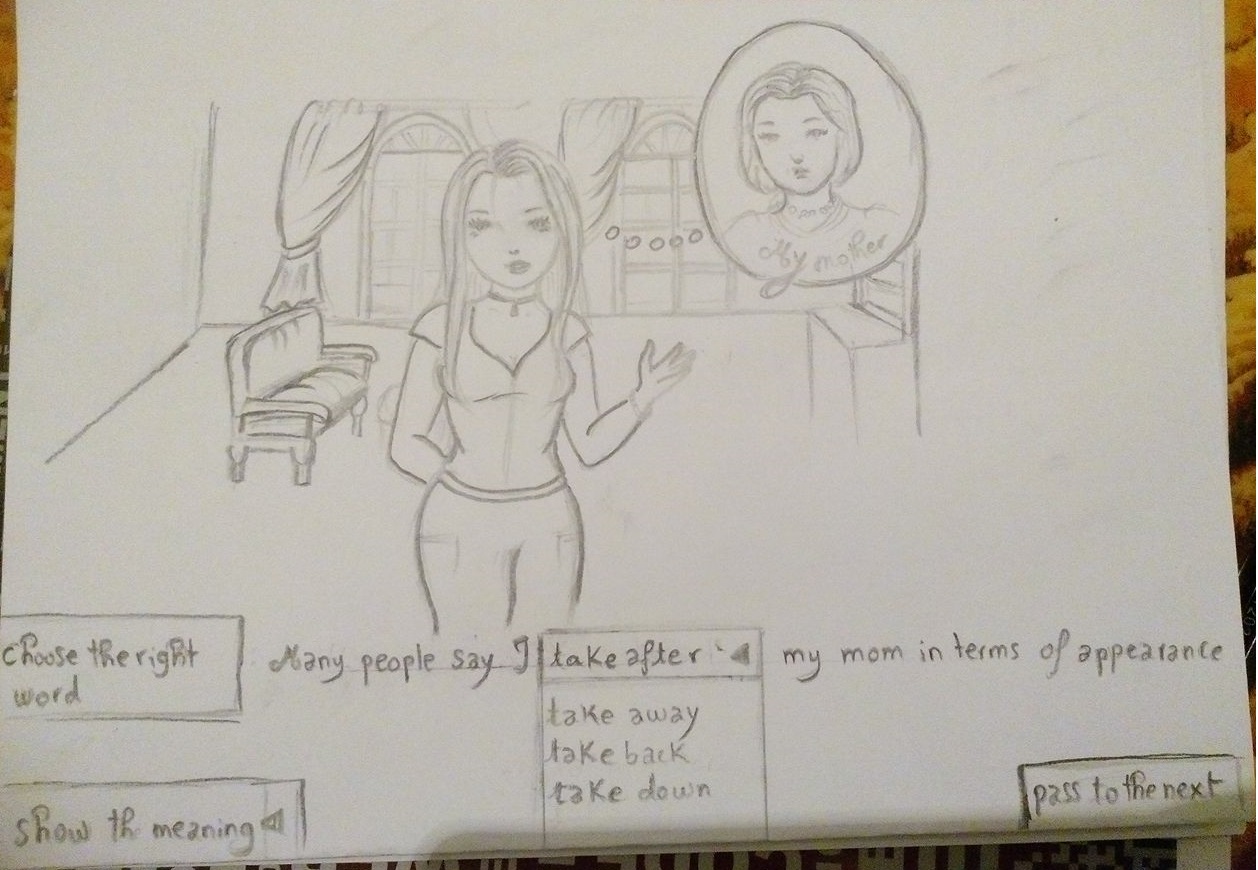 My mother
choose the right
word
Many people say I take after my mom in terms of appearance
take away
take back
take down
show th meaning
pass to the next